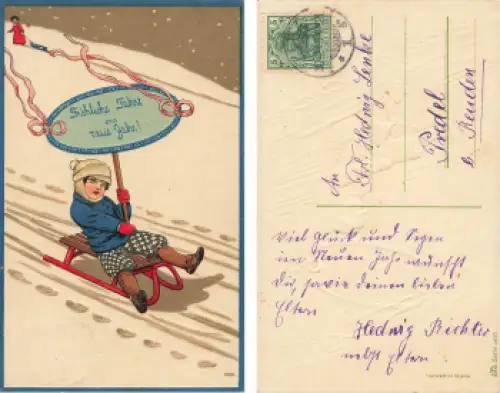 Fröhliche Fahrt
ins
neue Jahr!
5 5
An
Frl. Hedwig Lenke
Predel
b. Reuden
Viel Glück und Segen
im Neuen Jahr wünscht
Dir, sowie deinen lieben
Eltern
Hedwig Richter
nebst Eltern